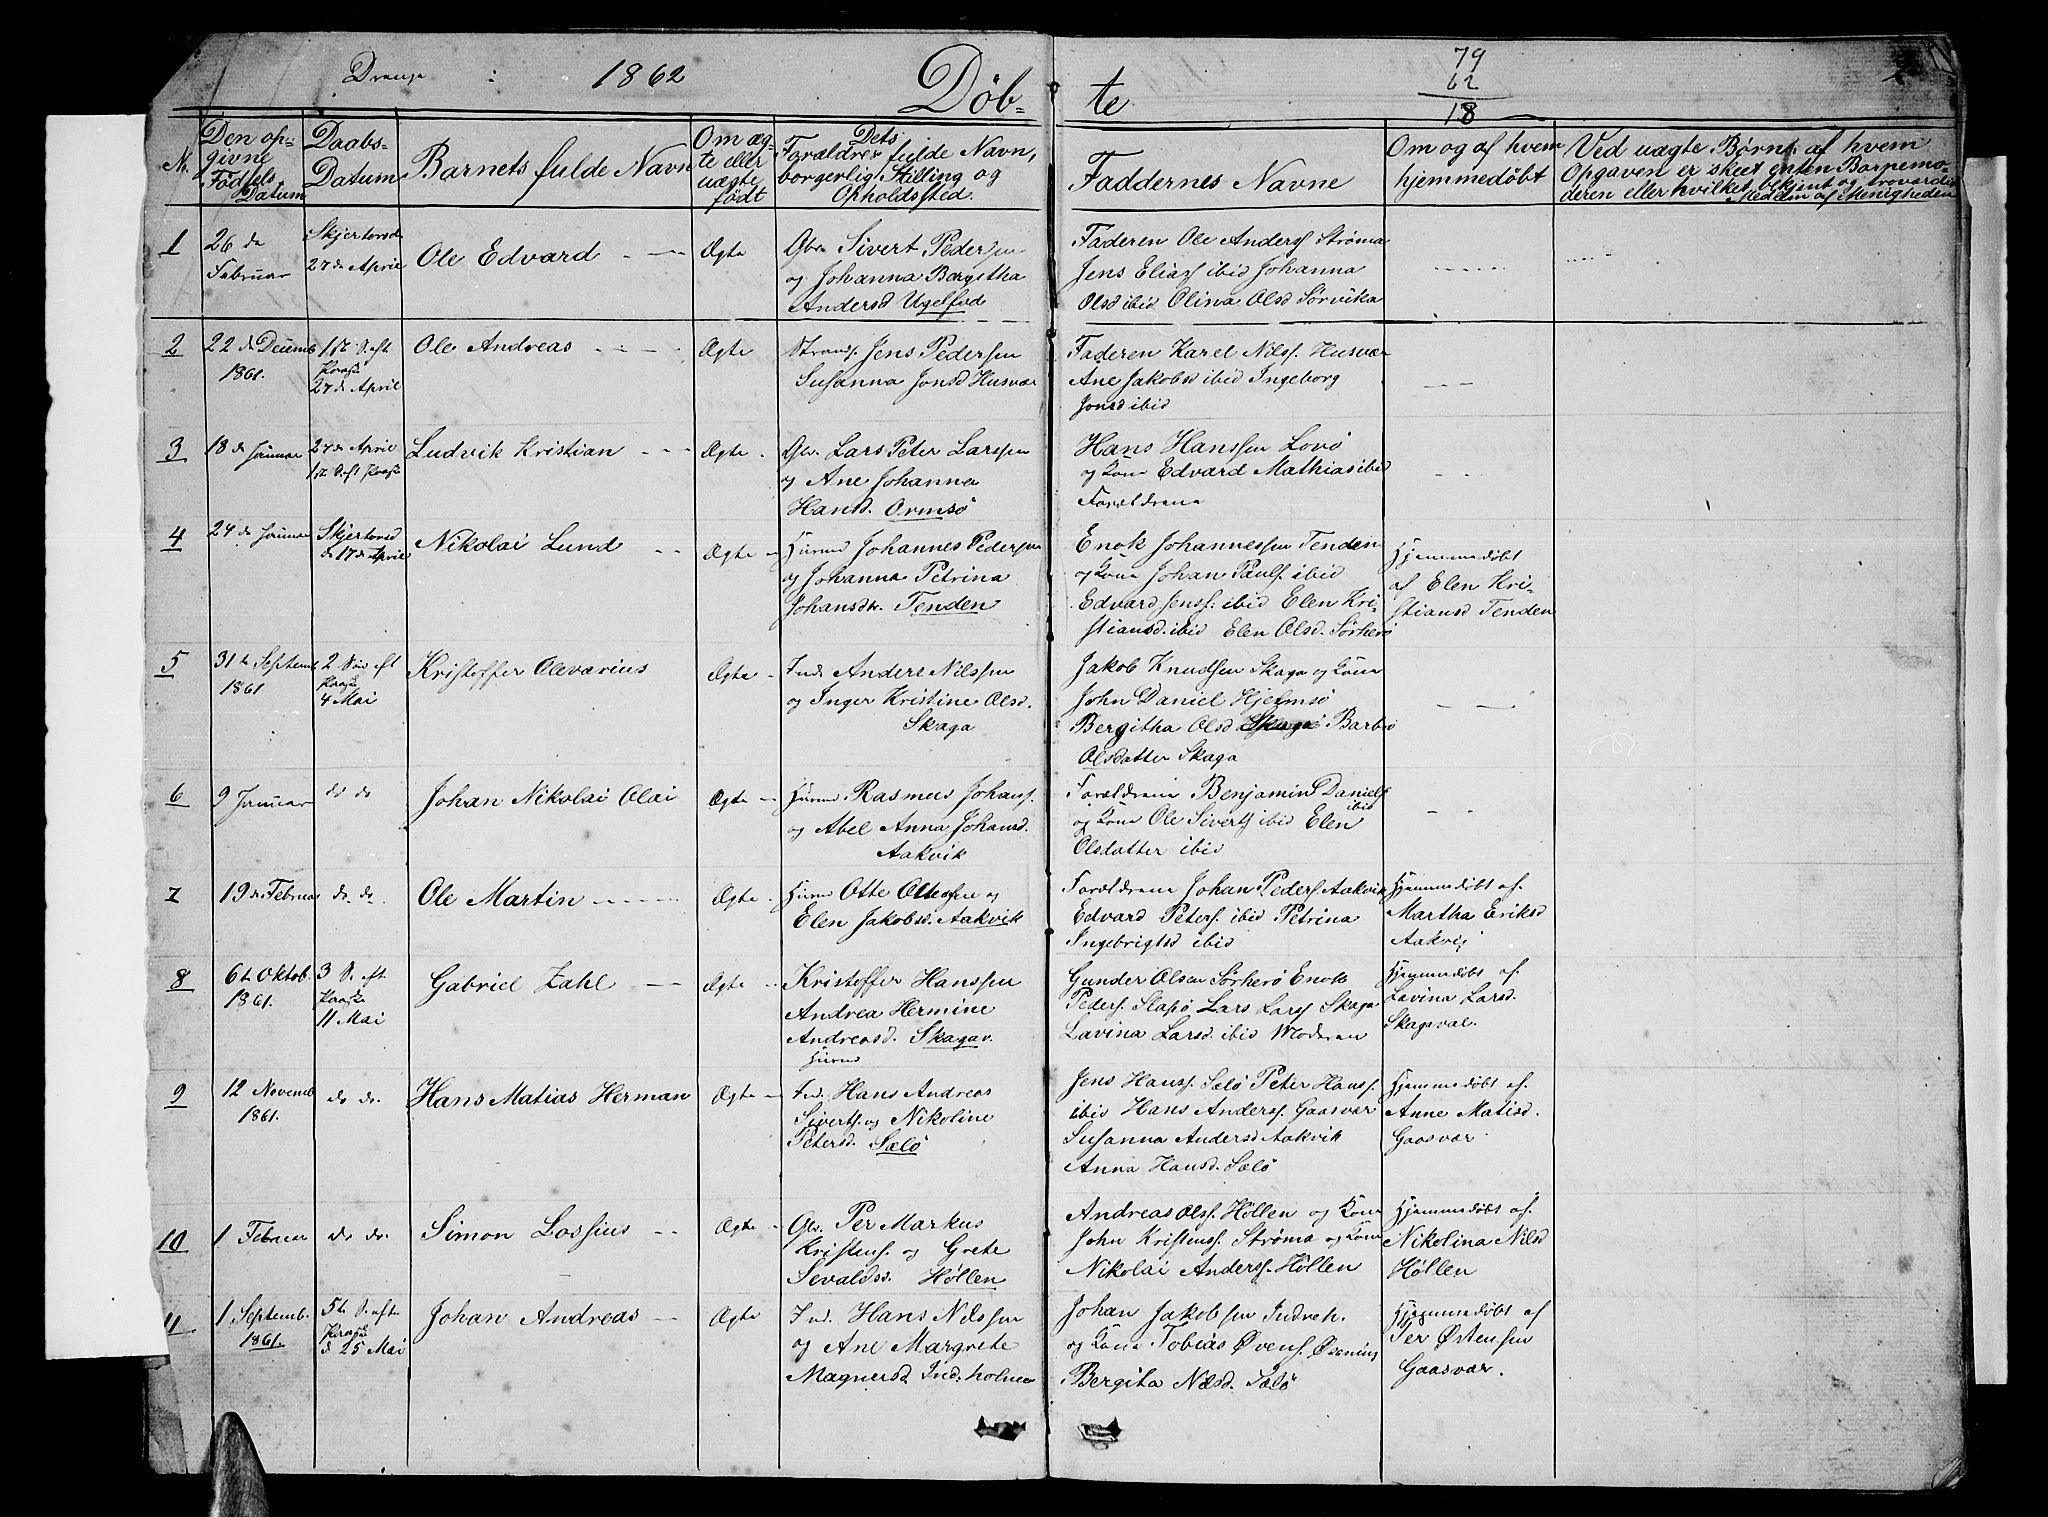 1862
Døb-
te
79
62
18
N.
Den op-
givne
Fødsels
Datum
Daabs-
Datum
Barnets fulde Navn
Om æg-
te eller
uægte
født
Dets
Forældres fulde Navn,
borgerlig Stilling og
Opholdssted.
Faddernes Navne
Om og af hvem
hjemmedøbt
Ved uægte Børn: af hvem
Opgaven er skeet enten Barnemo-
deren eller hvilket bekjent og troværdigt
Medlem af Menigheden
1
26 da
Februar
Skjertorsd
27da April
Ole Edvard
Ægte
Gbr Sivert Pedersen
og Johanna Bergitha
Andersd Ugelfud
Faderen Ole Anderss Strøma
Jens Eliass ibid Johanna
Olsd ibid Olina Olsd Sørvika
2
22 d Decemb
1861.
1ste S. eft
Paaske
27 da April
Ole Andreas
Ægte
Strands. Jens Pedersen
Susanna Jonsd Husvær
Faderen Karel Nilss. Husvær
Ane Jakobsd ibid Ingeborg
Jonsd ibid
3
18 de Januar
27de April
1ste S. eft Paaske
Ludvik Kristian
Ægte
Gbr. Lars Peter Larssen
og Ane Johanna
Hansd. Ormsø
Hans Hanssen Lovø
og Kone Edvard Mathias ibid
Forældrene
4
24 de Januar
Skjertorsd
d 17 de April
Nikolai Lund
Ægte
Huusmd Johannes Pedersen
og Johanna Petrina
Johansdtr. Tenden
Enok Johannessen Tenden
og Kone Johan Pauls. ibid
Edvard Jenss: ibid Elen Kri-
stiansd. ibid Elen Olsd. Sørherø
Hjemmedøbt
af Elen Kri-
stiansd Tenden
5
31te Septemb
1861
2 Sön eft
Paaske
4 Mai
Kristoffer Olevarius
Ægte
Ind. Anders Nilssen
og Inger Kristine Olsd.
Skaga
Jakob Knudssen Skaga og Kone
John Daniel Hjelmsø
Bergitha Olsd Skaga Barbro
Olsdatter Skaga
6
9 Januar
do do
Johan Nikolai Olai
Ægte
Huusmd Rasmus Johans.
og Abel Anna Johansd.
Aakvik
Forældrene Benjamin Daniels
ibid
og Kone Ole Siverts ibid Elen
Olsdatter ibid
7
19 de Februar
do. do.
Ole Martin
Ægte
Huusmd Otte Ottesen og
Elen Jakobsd. Aakvik
Forældrene Johan Peders. Aakvik
Edvard Peters. ibid Petrina
Ingebrigtsd ibid
Hjemmedøbt af.
Martha Eriksd
Aakvig
8
6te Oktob.
1861.
3 S. eft
Paaske
11 Mai
Gabriel Zahl
Ægte
Kristoffer Hanssen
Andrea Hermine
Andreasd. Skagav.
Huusmd
Gunder Olsen Sørherø Enok
Peders. Slapø Lars Larss Skaga
Lavina Larsd. ibid Moderen
Hjemmedøbt af.
Lavina Larsd.
Skagaval.
9
12 Novemb
1861.
do do.
Hans Matias Herman
Ægte
Ind. Hans Andreas
Siverts. og Nikoline
Petersd. Sælø
Jens Hanss. Selø Peter Hanss.
ibid Hans Anderss. Gaasvær
Susanna Andersd Aakvik
Anna Hansd. Sælø
Hjemmedøbt af.
Anne Matisd.
Gaasvær
10
1 Februar
do do.
Simon Lossius
Ægte
Gbr. Per Markus
Kristens. og Grete
Sevaldsd. Høllen
Andreas Olss. Høllen og Kone
John Kristenss. Strøma og Kone
Nikolai Anderss. Høllen
Hjemmedøbt af.
Nikolina Nilsd
Høllen
11
1 Septemb.
1861.
5te S. efte
Paaske
d 25 Mai
Johan Andreas
Ægte
Ind. Hans Nilssen
og Ane Margrete
Magnusd. Ind. holmen
Johan Jakobsen Indreh.
og Kone Tobias Øvens. Øxening
Bergita Nilsd. Sælø
Hjemmedøbt af
Per Østensen
Gaasvær.